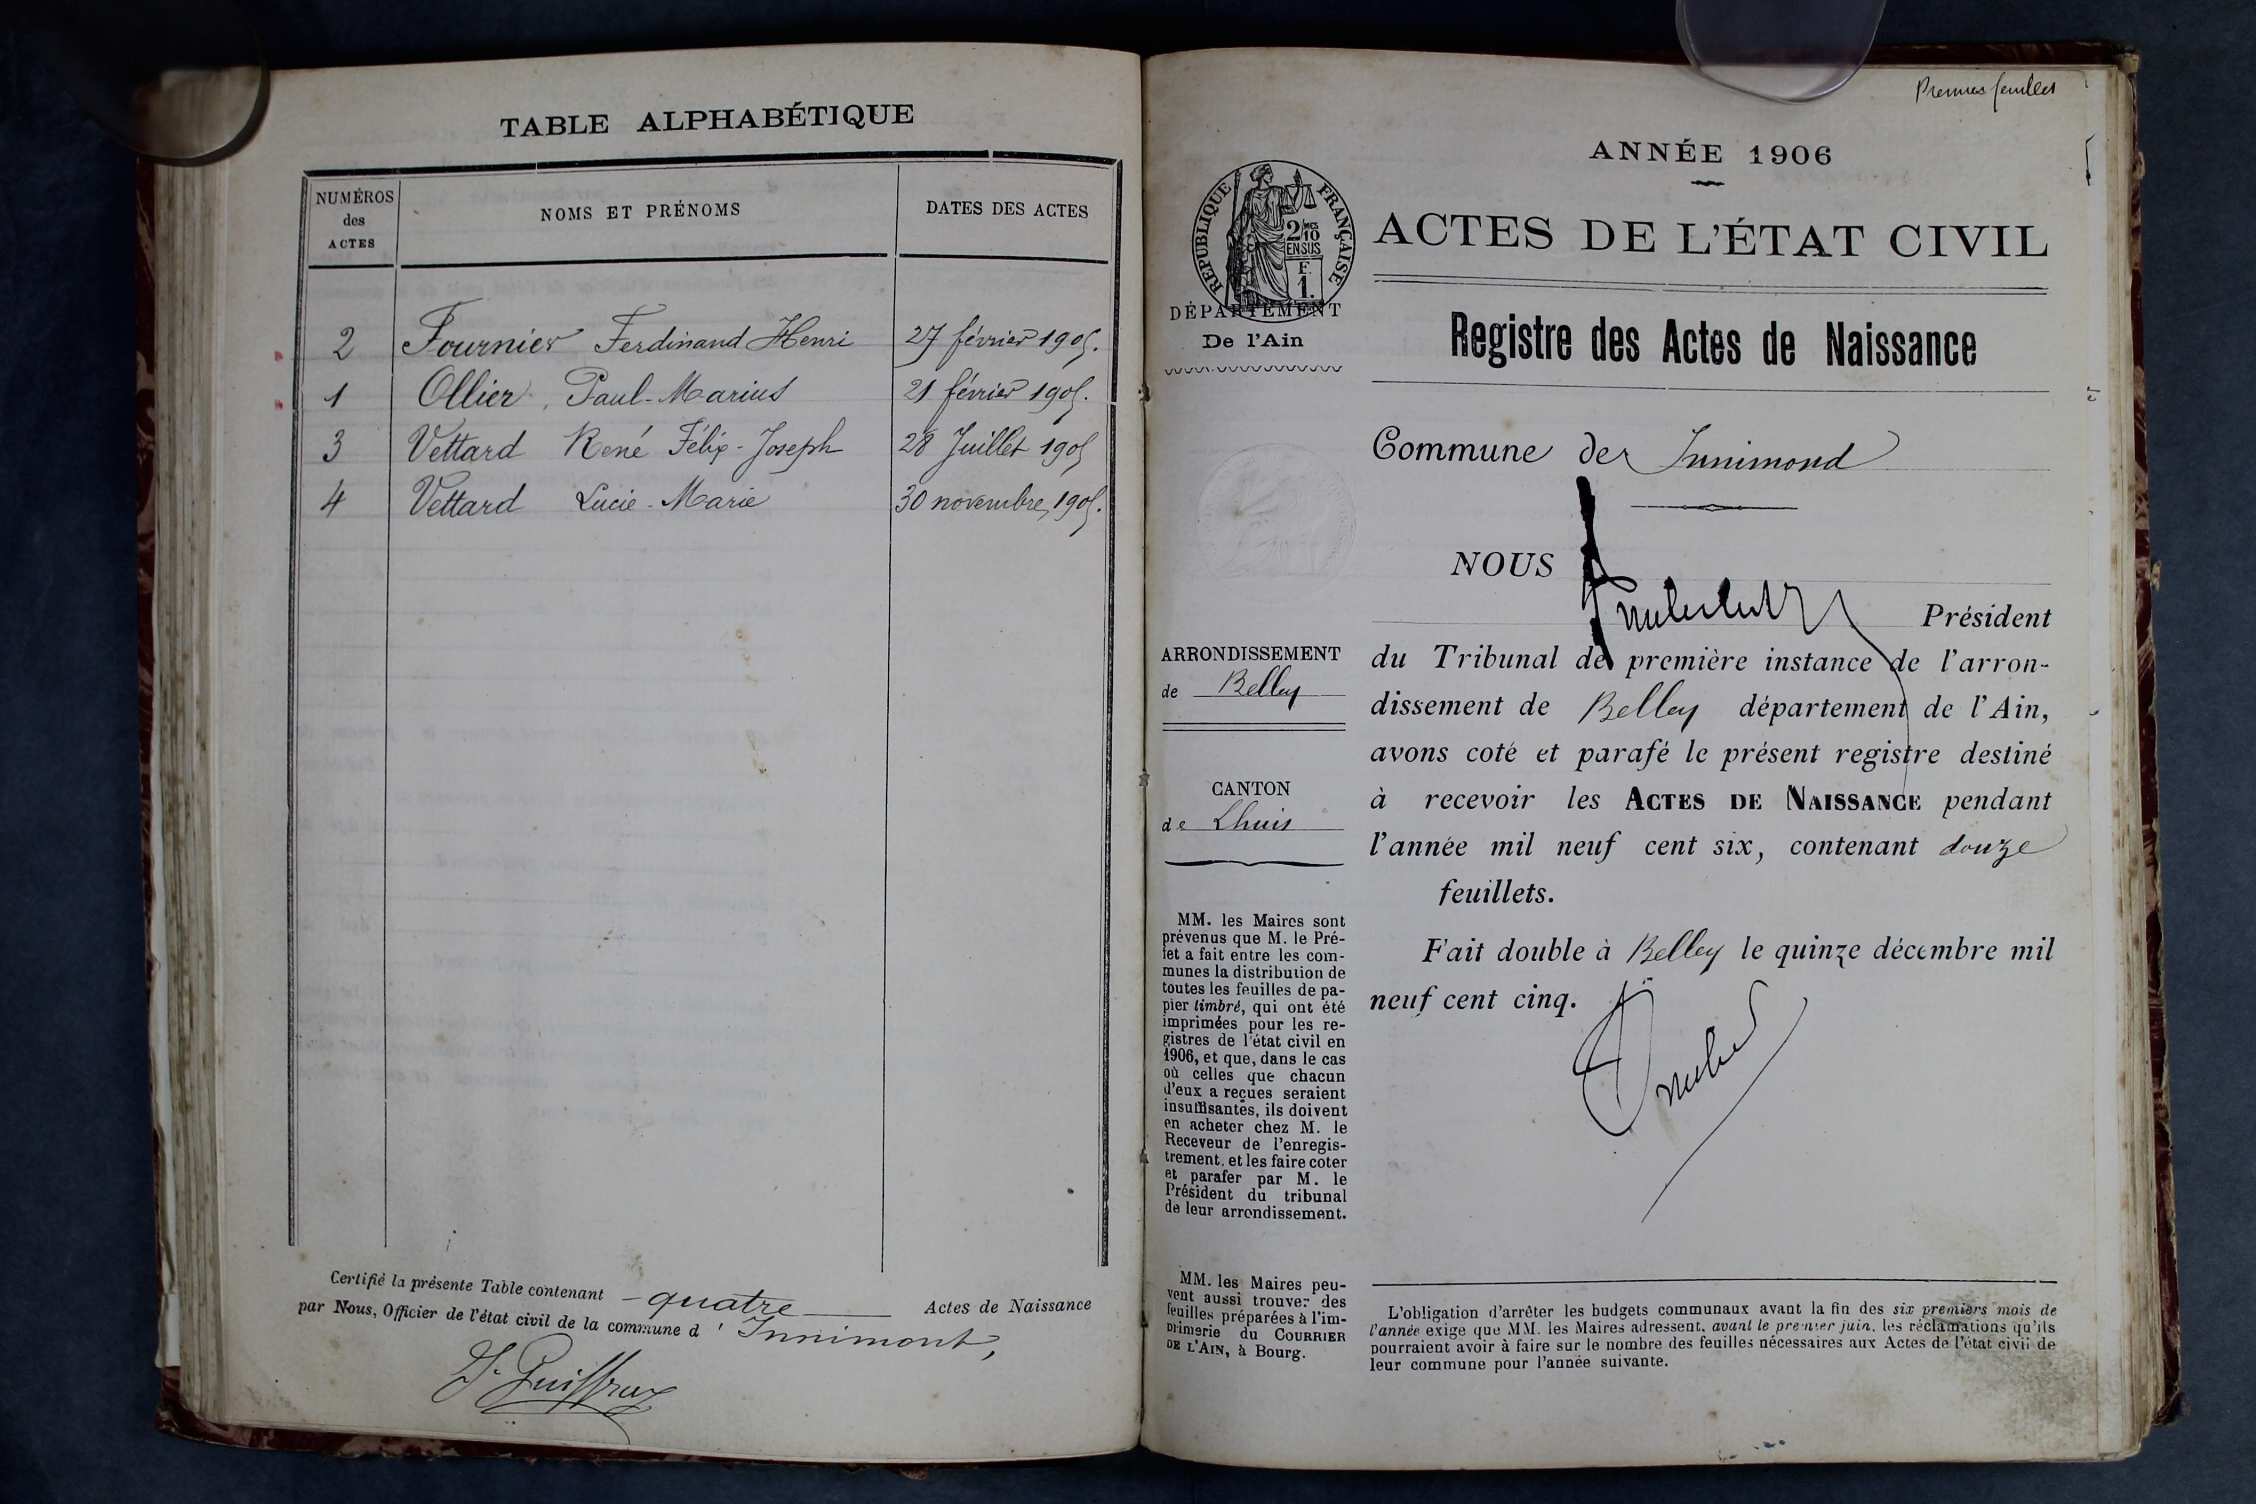 TABLE ALPHABÉTIQUE
NUMÉROS des ACTES
NOMS ET PRÉNOMS
DATES DES ACTES
2 Fournier Ferdinand Henri 27 février 1905.
1 Ollier, Paul-Marius 21 février 1905.
3 Vettard René Félix-Joseph 28 Juillet 1905
4 Vettard Lucie-Marie 30 novembre 1905.
Certifié la présente Table contenant quatre Actes de Naissance
par Nous, Officier de l'état civil de la commune d'Innimont,
ANNÉE 1906
RÉPUBLIQUE FRANÇAISE
2/10 EN SUS
F. 1.
DÉPARTEMENT
De l'Ain
ACTES DE L'ÉTAT CIVIL
Registre des Actes de Naissance
Commune de Innimond
NOUS
Président
du Tribunal de première instance de l'arron-
dissement de Belley département de l'Ain,
avons coté et parafé le présent registre destiné
à recevoir les ACTES DE NAISSANCE pendant
l'année mil neuf cent six, contenant douze
feuillets.
Fait double à Belley le quinze décembre mil
neuf cent cinq.
ARRONDISSEMENT
de Belley
CANTON
de Lhuis
MM. les Maires sont
prévenus que M. le Pré-
fet a fait entre les com-
munes la distribution de
toutes les feuilles de pa-
pier timbré, qui ont été
imprimées pour les re-
gistres de l'état civil en
1906, et que, dans le cas
où celles que chacun
d'eux a reçues seraient
insuffisantes, ils doivent
en acheter chez M. le
Receveur de l'enregis-
trement, et les faire coter
et parafer par M. le
Président du tribunal
de leur arrondissement.
MM. les Maires peu-
vent aussi trouver des
feuilles préparées à l'im-
primerie du COURRIER
DE L'AIN, à Bourg.
L'obligation d'arrêter les budgets communaux avant la fin des six premiers mois de
l'année exige que MM. les Maires adressent, avant le premier juin, les réclamations qu'ils
pourraient avoir à faire sur le nombre des feuilles nécessaires aux Actes de l'état civil de
leur commune pour l'année suivante.